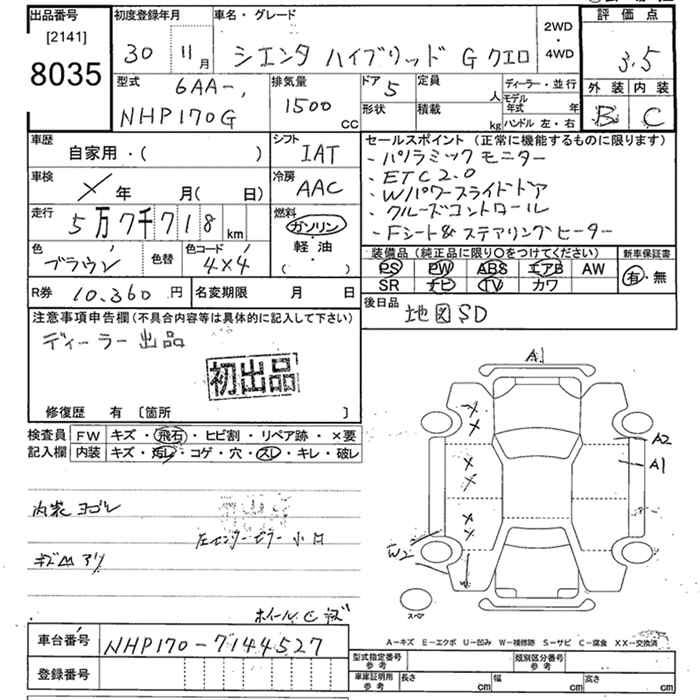 出品番号 初度登録年月 車名・グレード 評価点
[2141] 8035
30 11月 シエンタ ハイブリッド G クエロ 2WD・4WD 3.5
型式 6AA-, 排気量 ドア 5 定員 人 ディーラー・並行 外装 内装
NHP170G 1500cc 形状 積載 kg モデル年式 年 B C
ハンドル 左・右
車歴 シフト セールスポイント (正常に機能するものに限ります)
自家用・( ) IAT ・パノラミックモニター
車検 冷房 ・ETC2.0
× 年 月( 日) AAC ・Wパワースライドドア
走行 5万7千718km 燃料 ・クルーズコントロール
ガソリン・軽油・( ) ・Fシート&ステアリングヒーター
色 ブラウン 色替 色コード 4X4 装備品 (純正品に限り○をつけてください) 新車保証書
PS PW ABS エアB AW 有・無
SR ナビ TV カワ
R券 10,360円 名変期限 月 日 後日品 地図SD
注意事項申告欄(不具合内容等は具体的に記入して下さい)
ディーラー出品
初出品
修復歴 有 [箇所 ]
検査員 FW キズ・飛石・ヒビ割・リペア跡・×要
記入欄 内装 キズ・汚レ・コゲ・穴・スレ・キレ・破レ
A1
A2
A1
内装ヨゴレ
左センターピラー小凹
キズ凹アリ W2
スペア
ホイールキズ
A-キズ E-エクボ U-凹み W-補修跡 S-サビ C-腐食 XX-交換済
車台番号 NHP170-7144527
型式指定番号 参考 類別区分番号 参考
登録番号 車庫証明用 参考 長さ cm 幅 cm 高さ cm